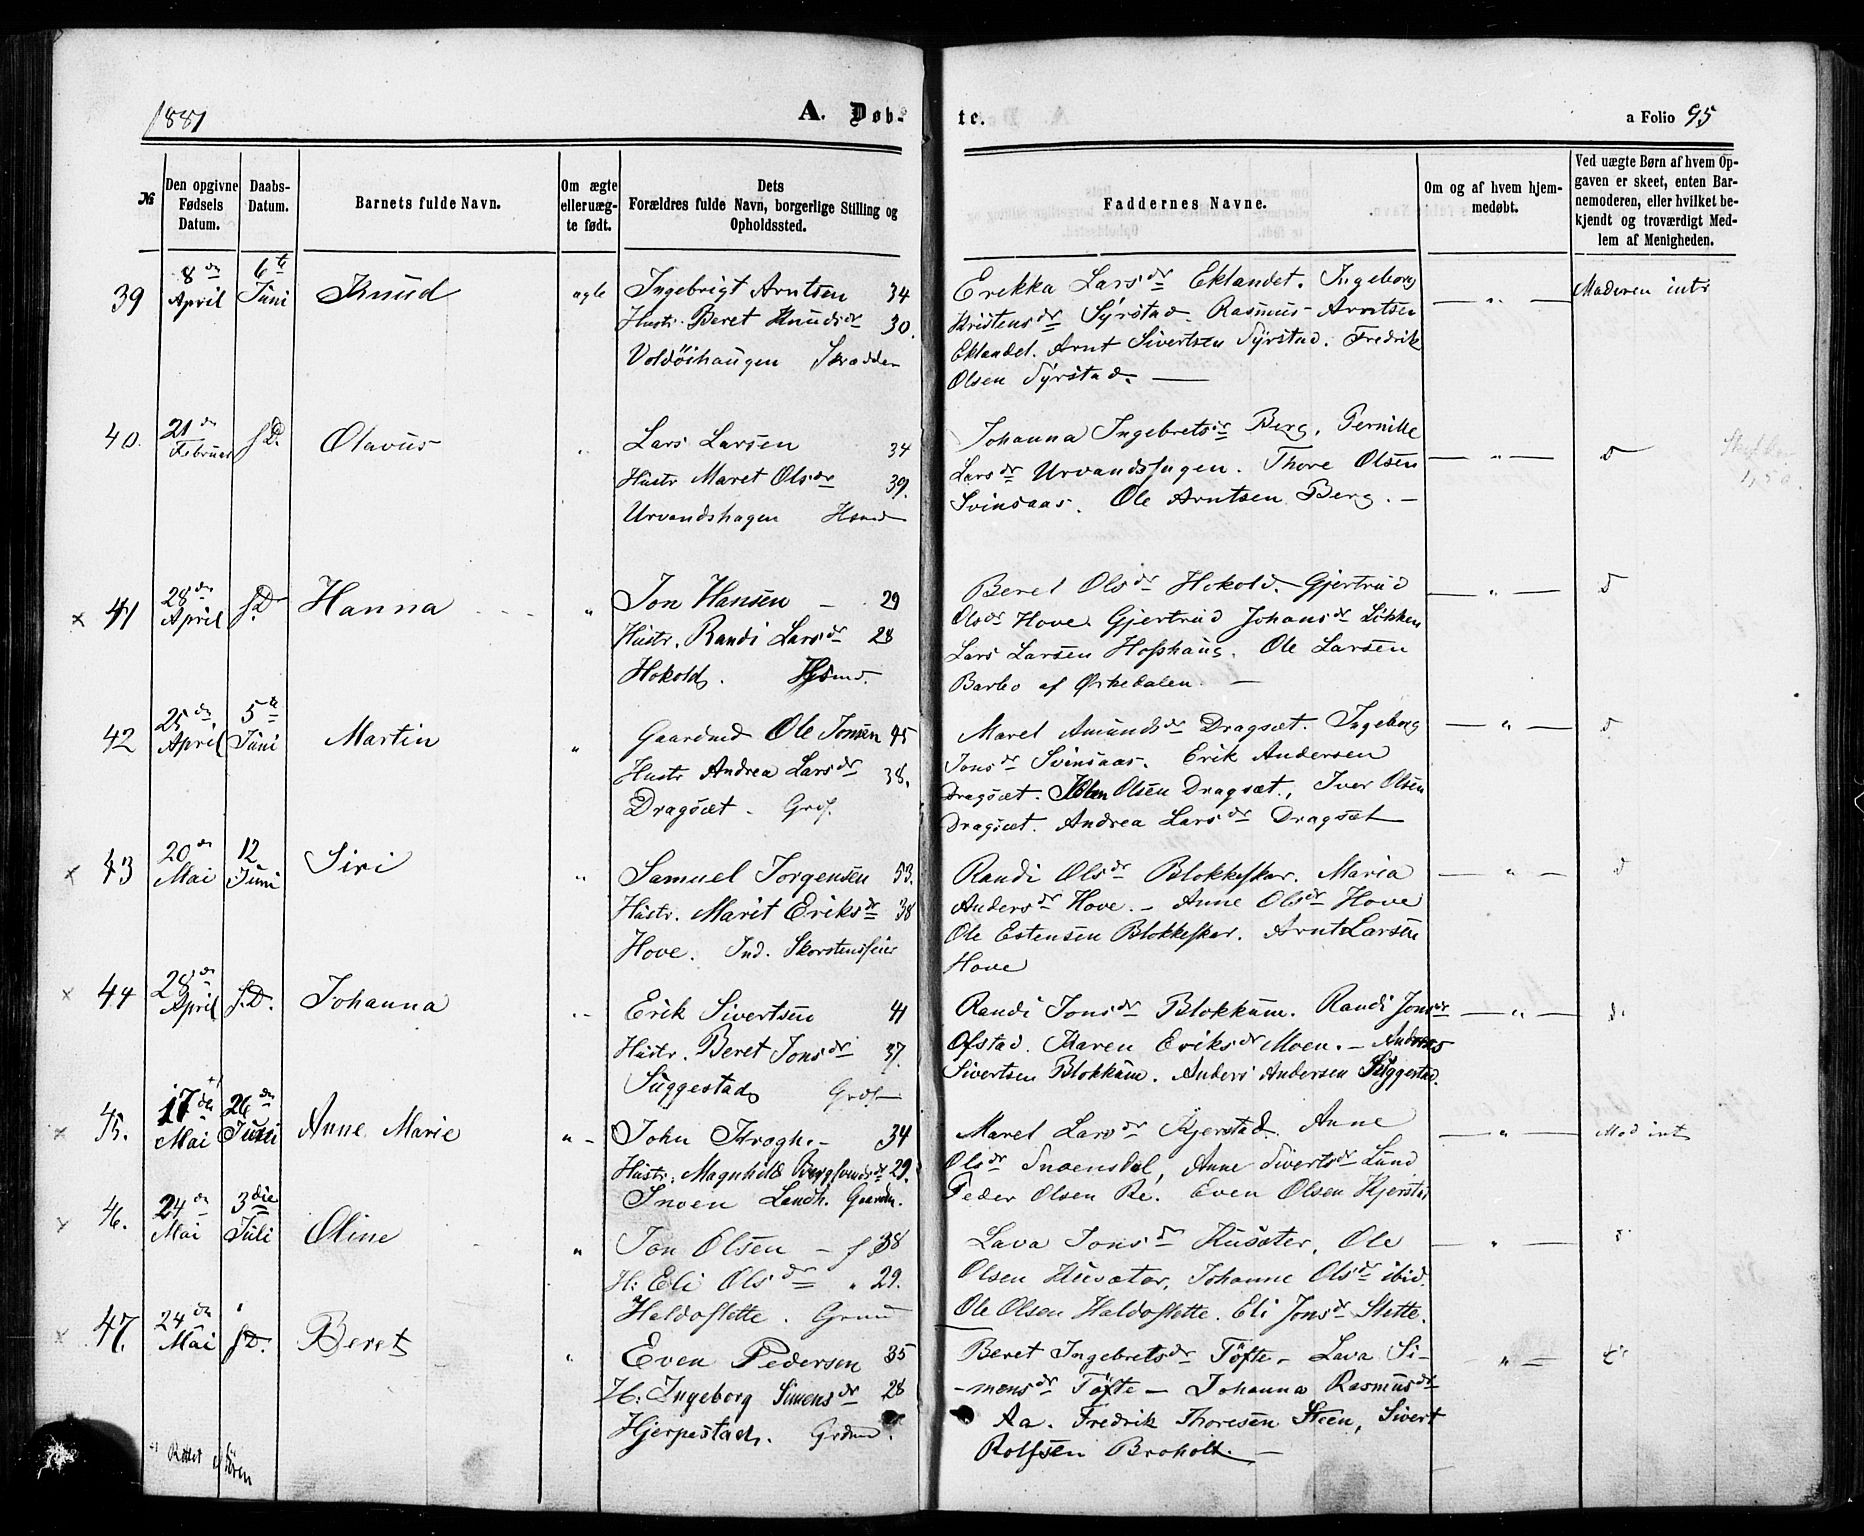 1881
A. Døb-
te.
a Folio 95
№
Den opgivne Fødsels Datum.
Daabs-Datum.
Barnets fulde Navn.
Om ægte eller uægte født.
Dets Forældres fulde Navn, borgerlige Stilling og Opholdssted.
Faddernes Navne.
Om og af hvem hjemmedøbt.
Ved uægte Børn af hvem Opgaven er skeet, enten Barnemoderen, eller hvilket bekjendt og troværdigt Medlem af Menigheden.
39 8de April 6te Juni Knud ægte
Ingebrigt Arntsen 34
Hustr. Beret Knudsdr 30.
Voldöihaugen Skrædder
Erekka Larsdr Eklandet. Ingeborg
Kristensdr Syrstad. Rasmus Arntsen
Eklandet. Arnt Sivertsen Syrstad. Fredrik
Olsen Syrstad. —
— " — Moderen int
40. 21de Februar s.D. Olavus "
Lars Larsen 34
Hustr Maret Olsdr 39.
Urvandshagen Hsmd
Johanna Ingebretsdr Berg. Pernille
Larsdr Urvandshagen. Thore Olsen
Svinsaas. Ole Arntsen Berg. —
— " — d
1,50.
x 41 28de April s.D. Hanna "
Jon Hansen — 29
Hustr. Randi Larsdr 28
Hokold. Hsmd.
Beret Olsdr Hokold. Gjertrud
Olsdr Hove. Gjertrud Johansdr Løkken
Lars Larsen Hofshaug. Ole Larsen
Barbo af Ørkedalen. —
— " — d
42 25de April 5te Juni Martin "
Gaardmd Ole Jonsen 45
Hustr Andrea Larsdr 38.
Dragsæt. Grdf.
Maret Amundsdr Dragsæt. Ingeborg
Jonsdr Svinsaas. Erik Andersen
Dragsæt. Olsen Dragsæt., Iver Olsen
Dragsæt. Andrea Larsdr Dragsæt
— " — d
x 43 20de Mai 12 Juni Siri "
Samuel Jorgensen 53.
Hustr. Marit Eriksdr 38
Hove. Ind. Skorstensfeier
Randi Olsdr Blokkeskar. Maria
Andersdr Hove. — Anne Olsdr Hove
Ole Estensen Blokkeskar. Arnt Larsen
Hove
— " — d
x 44 28de April s.D. Johanna "
Erik Sivertsen 41
Hustr. Beret Jonsdr 37.
Suggestad Grdf
Randi Jonsdr Blokkum. Randi Jonsdr
Ofstad. Karen Eriksdr Moen. — Andreas
Sivertsen Blokkum. Anders Andersen Suggestad.
— " — d.
x 45. 17de Mai 26de Juni Anne Marie "
John Krogh. — 34
Hustr. Magnhild Bergsvendsdr 29.
Snoen Landh. Gaardm.
Maret Larsdr Kjerstad. Anne
Olsdr Snoensdal, Anne Sivertsdr Lund
Peder Olsen Re. Even Olsen Kjerstad
— " — Mod int
x 46. 24de Mai 3die Juli Oline "
Jon Olsen — f 38
H: Eli Olsdr " 29.
Haldoslette. Grmd
Lava Jonsdr Husæter, Ole
Olsen Husæter, Johanne Olsdr ibid.
Ole Olsen Haldoslette. Eli Jonsdr Slette.
— " —
x 47. 24de Mai s.D. Beret "
Even Pedersen 35
H: Ingeborg Simensdr 28
Hjerpestad. Grdmd.
Beret Ingebretsdr Töfte — Lava Si-
-mensdr Töfte — Johanna Rasmusdr
Aa. Fredrik Thoresen Steen, Sivert
Rolfsen Broholt. —
" —
+) Rettet